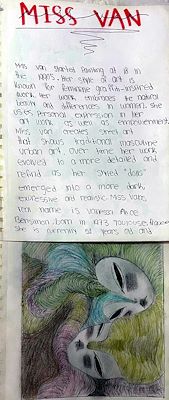 MISS VAN
Miss Van started painting at 18 in
the 1990's. Her style of art is
known for feminine graffiti-inspired
work. Her work embraces the natural
beauty and differences in women. She
uses personal expression in her
art work as well as empowerment.
Miss Van creates street art
that shows traditional masculine
urban art. Over time her work
evolved to a more detailed and
refind as her styled "dolls"
emerged into a more dark,
expressive and realistic. Miss Vans
real name is Vanessa Alice
Bensimon, born in 1973 Toulouse, France
she is currently 51 years old and